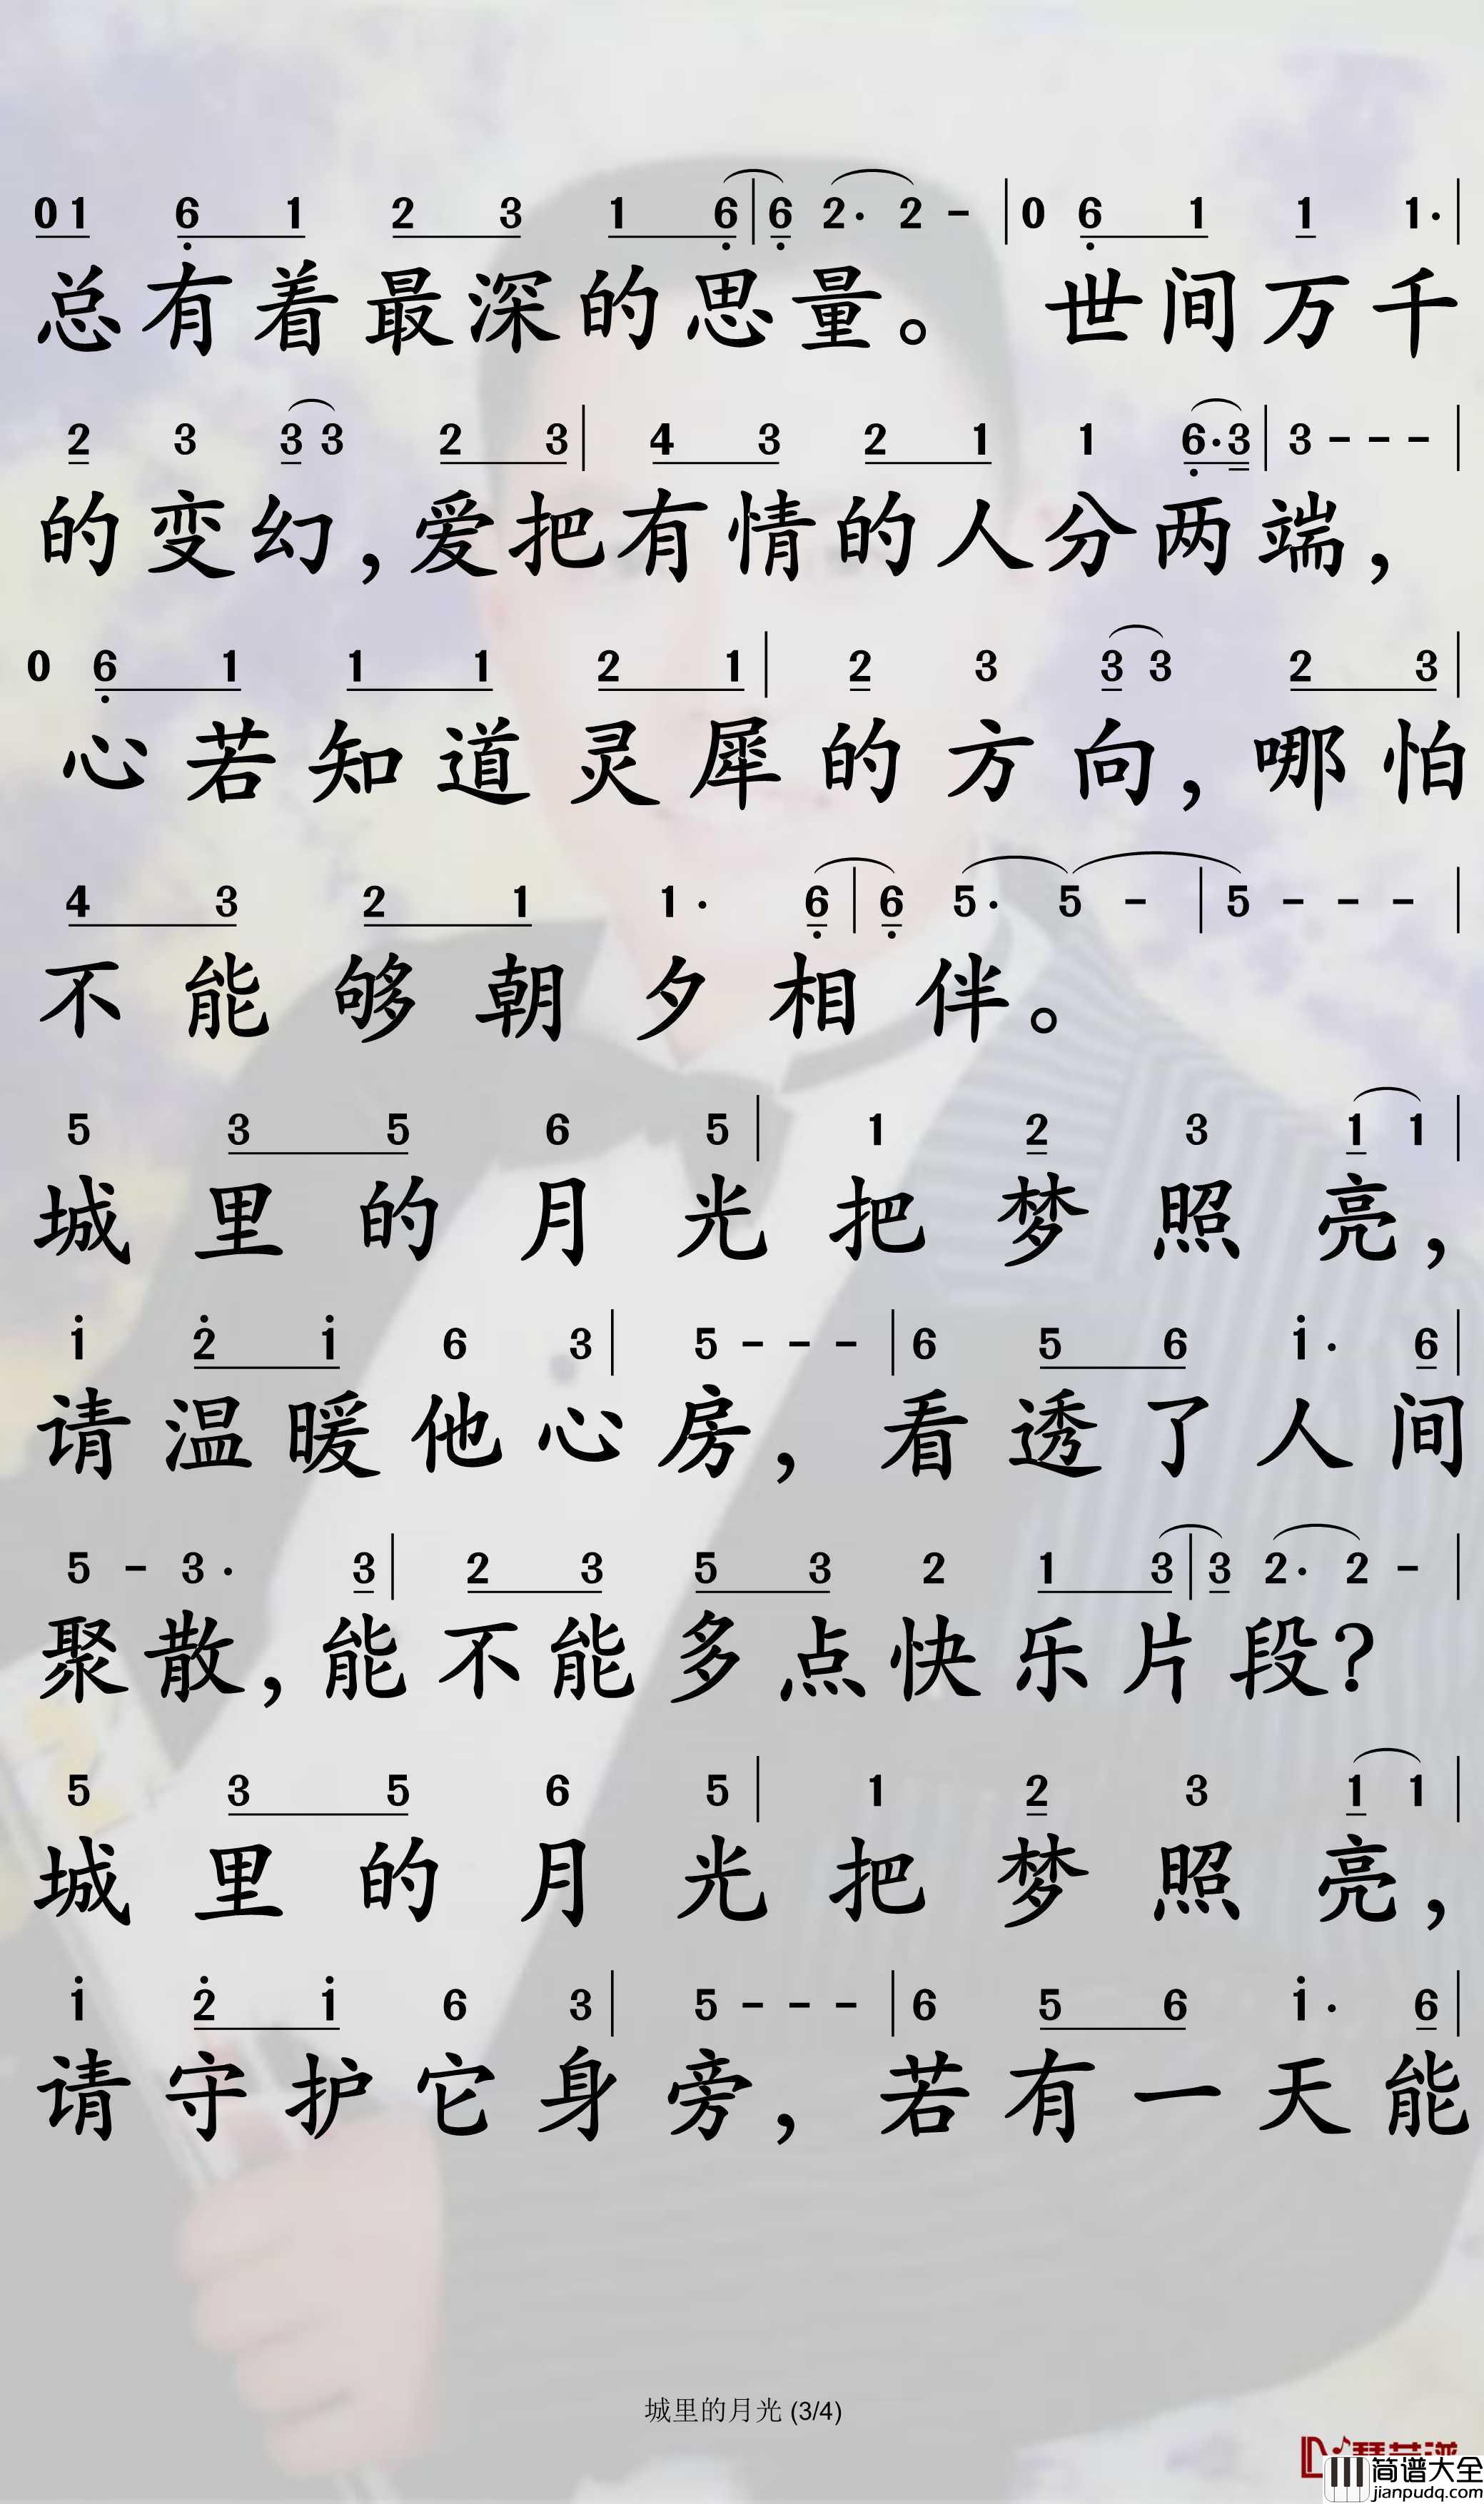 01 6 1 2 3 1 6 | 6 2· 2 - | 0 6 1 1 1· |
总有着最深的思量。 世间万千
2 3 3 3 2 3 | 4 3 2 1 1 6·3 | 3 - - - |
的变幻,爱把有情的人分两端,
0 6 1 1 1 2 1 | 2 3 3 3 2 3 |
心若知道灵犀的方向,哪怕
4 3 2 1 1· 6 | 6 5· 5 - | 5 - - - |
不能够朝夕相伴。
5 3 5 6 5 | 1 2 3 1 1 |
城里的月光把梦照亮,
i 2 i 6 3 | 5 - - - | 6 5 6 i· 6 |
请温暖他心房,看透了人间
5 - 3· 3 | 2 3 5 3 2 1 3 | 3 2· 2 - |
聚散,能不能多点快乐片段?
5 3 5 6 5 | 1 2 3 1 1 |
城里的月光把梦照亮,
i 2 i 6 3 | 5 - - - | 6 5 6 i· 6 |
请守护它身旁,若有一天能
城里的月光 (3/4)
简谱大全
jianpudq.com